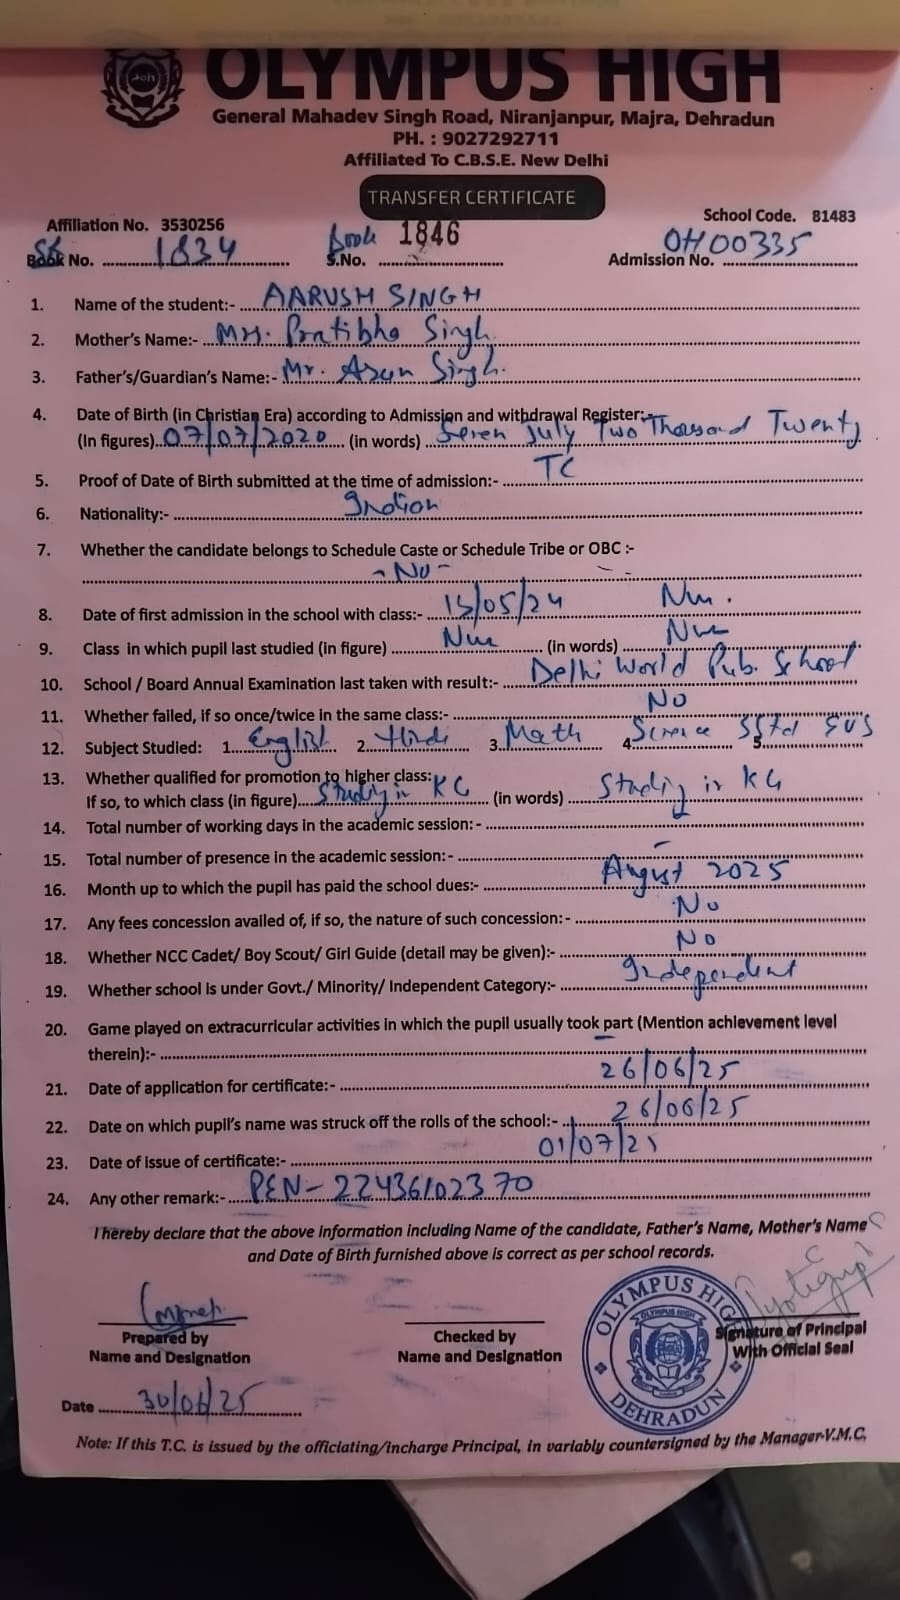 OLYMPUS HIGH
General Mahadev Singh Road, Niranjanpur, Majra, Dehradun
PH. : 9027292711
Affiliated To C.B.S.E. New Delhi
TRANSFER CERTIFICATE
Affiliation No. 3530256 School Code. 81483
Book No. 1834 Book S.No. 1846 Admission No. OH00335
1. Name of the student:- AARUSH SINGH
2. Mother's Name:- Mrs. Pratibha Singh.
3. Father's/Guardian's Name:- Mr. Arun Singh.
4. Date of Birth (in Christian Era) according to Admission and withdrawal Register:-
(In figures) 07/07/2020 (in words) Seven July Two Thousand Twenty
5. Proof of Date of Birth submitted at the time of admission:- TC
6. Nationality:- Indian
7. Whether the candidate belongs to Schedule Caste or Schedule Tribe or OBC :-
- No -
8. Date of first admission in the school with class:- 15/05/24 Nur.
9. Class in which pupil last studied (in figure) Nur (in words) Nur
10. School / Board Annual Examination last taken with result:- Delhi World Pub. School
11. Whether failed, if so once/twice in the same class:- No
12. Subject Studied: 1. English 2. Hindi 3. Math 4. Science 5. EVS
13. Whether qualified for promotion to higher class:
If so, to which class (in figure) Studing in KG (in words) Studing in KG
14. Total number of working days in the academic session: - -
15. Total number of presence in the academic session: - -
16. Month up to which the pupil has paid the school dues:- August 2025
17. Any fees concession availed of, if so, the nature of such concession: - No
18. Whether NCC Cadet/ Boy Scout/ Girl Guide (detail may be given):- No
19. Whether school is under Govt./ Minority/ Independent Category:- Independent
20. Game played on extracurricular activities in which the pupil usually took part (Mention achievement level
therein):- -
21. Date of application for certificate:- 26/06/25
22. Date on which pupil's name was struck off the rolls of the school:- 26/06/25
23. Date of issue of certificate:- 01/07/25
24. Any other remark:- PEN- 22436102370
I hereby declare that the above information including Name of the candidate, Father's Name, Mother's Name
and Date of Birth furnished above is correct as per school records.
Prepared by
Name and Designation
Checked by
Name and Designation
OLYMPUS HIGH
DEHRADUN
Signature of Principal
With Official Seal
Date 30/06/25
Note: If this T.C. is issued by the officiating/incharge Principal, in variably countersigned by the Manager-V.M.C.